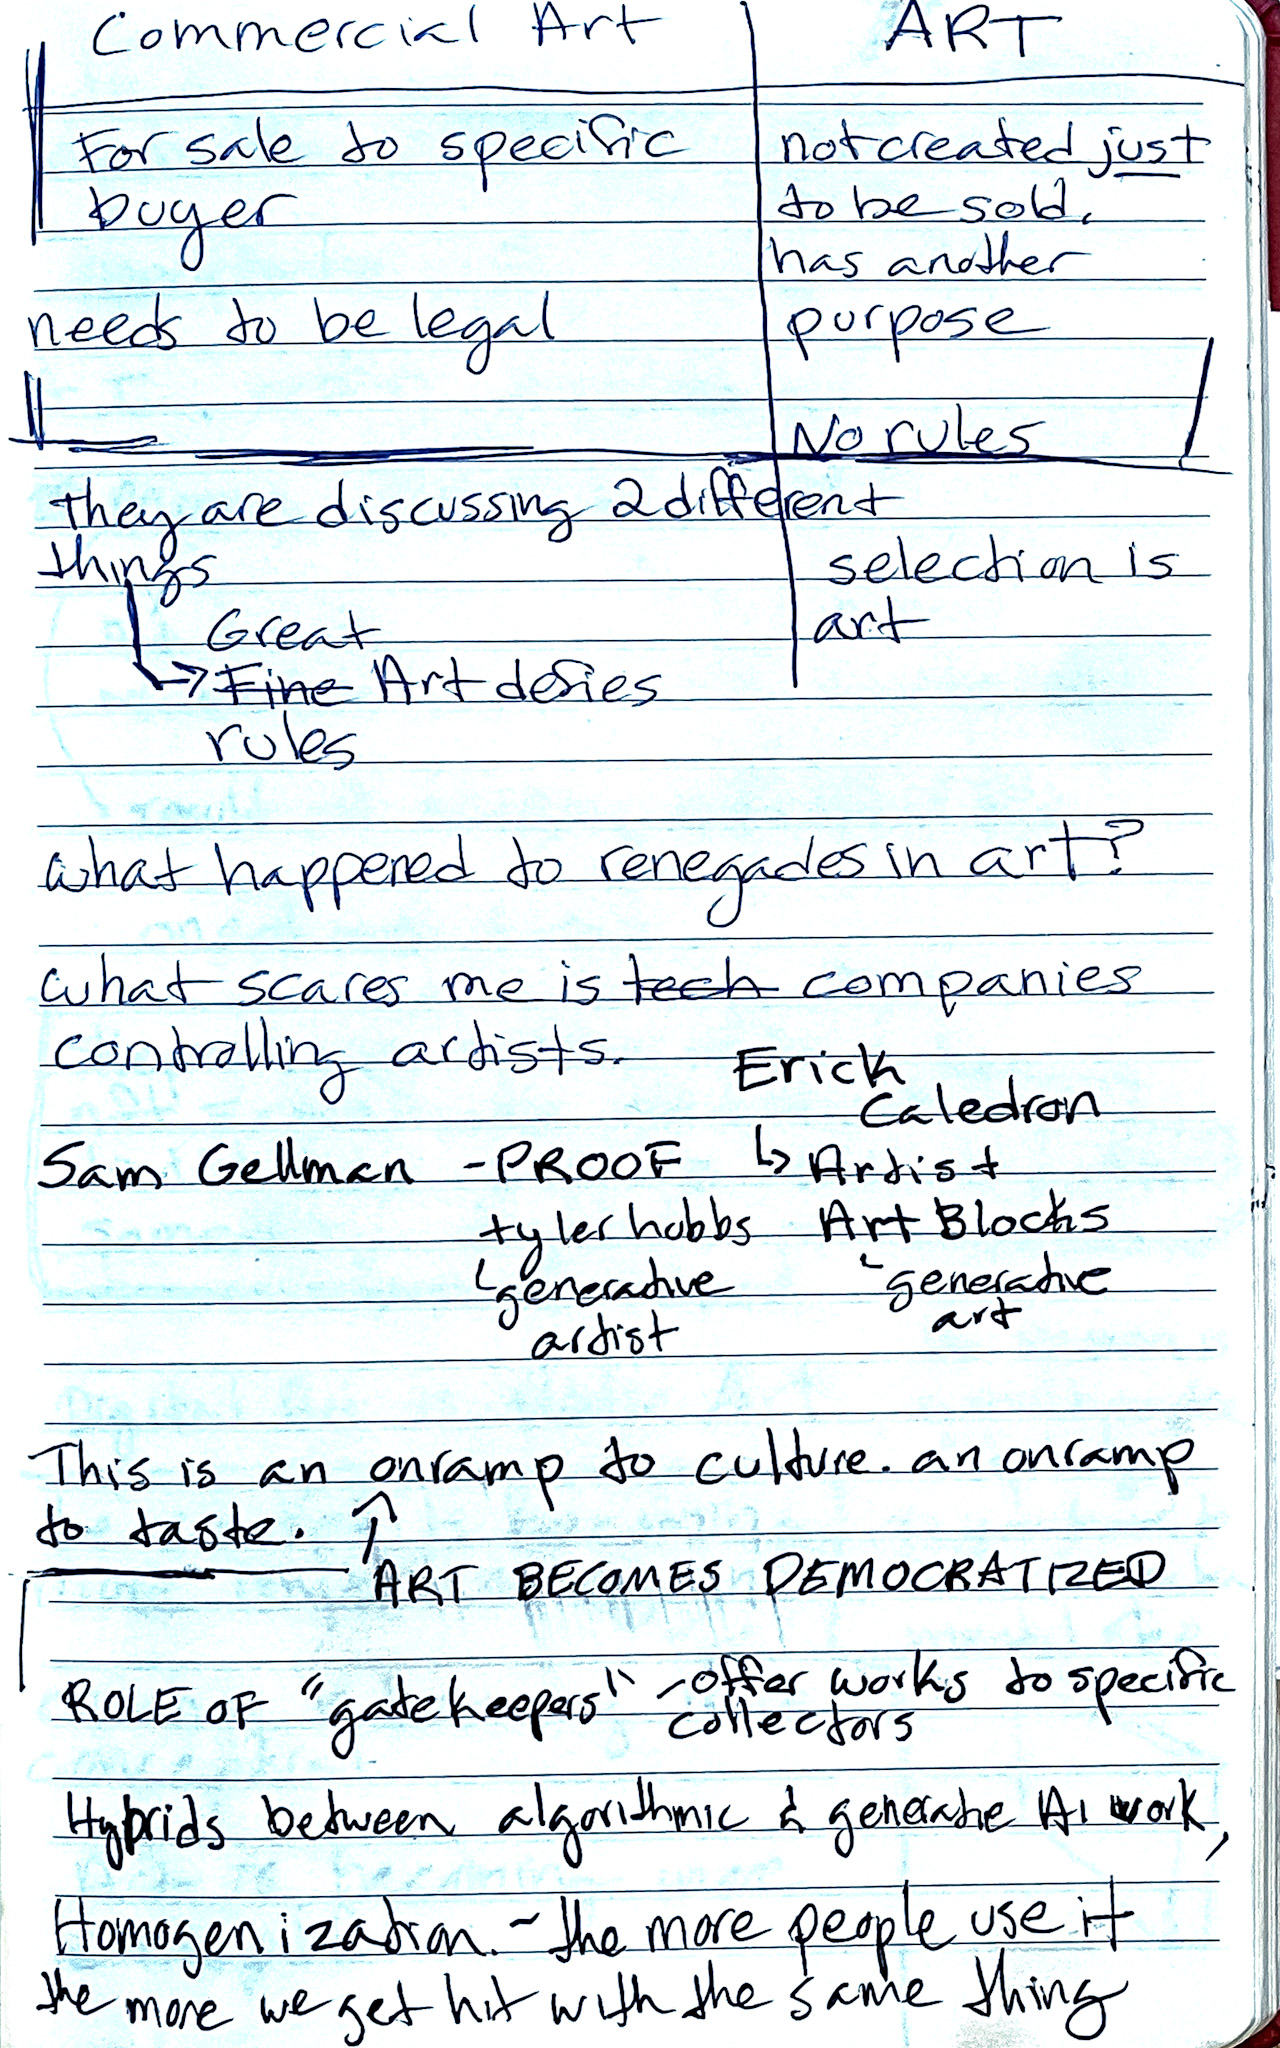 Commercial Art
ART
For sale to specific
buyer
needs to be legal
not created just
to be sold.
has another
purpose
No rules
they are discussing 2 different
things
Great
Fine Art defies
rules
selection is
art
what happened to renegades in art?
what scares me is tech companies
controlling artists.
Erick
Caledron
Sam Gellman - PROOF
↳ Artist
tyler hobbs
Art Blocks
generative
artist
generative
art
This is an onramp to culture. an onramp
to taste.
ART BECOMES DEMOCRATIZED
ROLE OF "gatekeepers" - offer works to specific
collectors
Hybrids between algorithmic & generative AI work,
Homogenization. - the more people use it
the more we get hit with the same thing